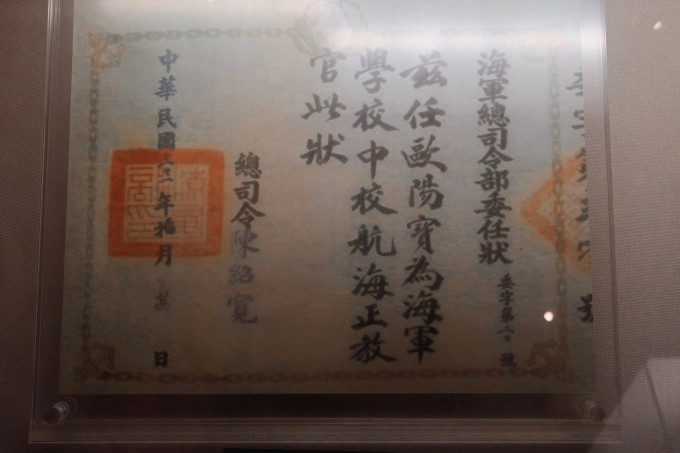 海軍總司令部委任狀
委字第二〇號
茲任歐陽寶為海軍
學校中校航海正教
官此狀
總司令陳紹寬
中華民國年拾月日